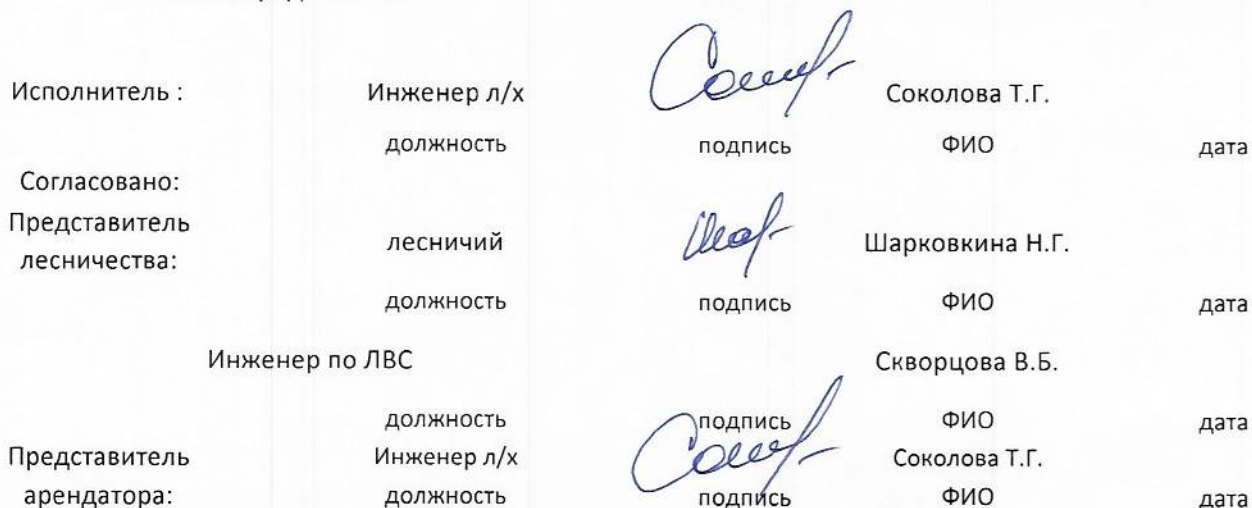 Исполнитель : Инженер л/х Соколова Т.Г.
должность подпись ФИО дата
Согласовано:
Представитель
лесничества: лесничий Шарковкина Н.Г.
должность подпись ФИО дата
Инженер по ЛВС Скворцова В.Б.
должность подпись ФИО дата
Представитель Инженер л/х Соколова Т.Г.
арендатора: должность подпись ФИО дата